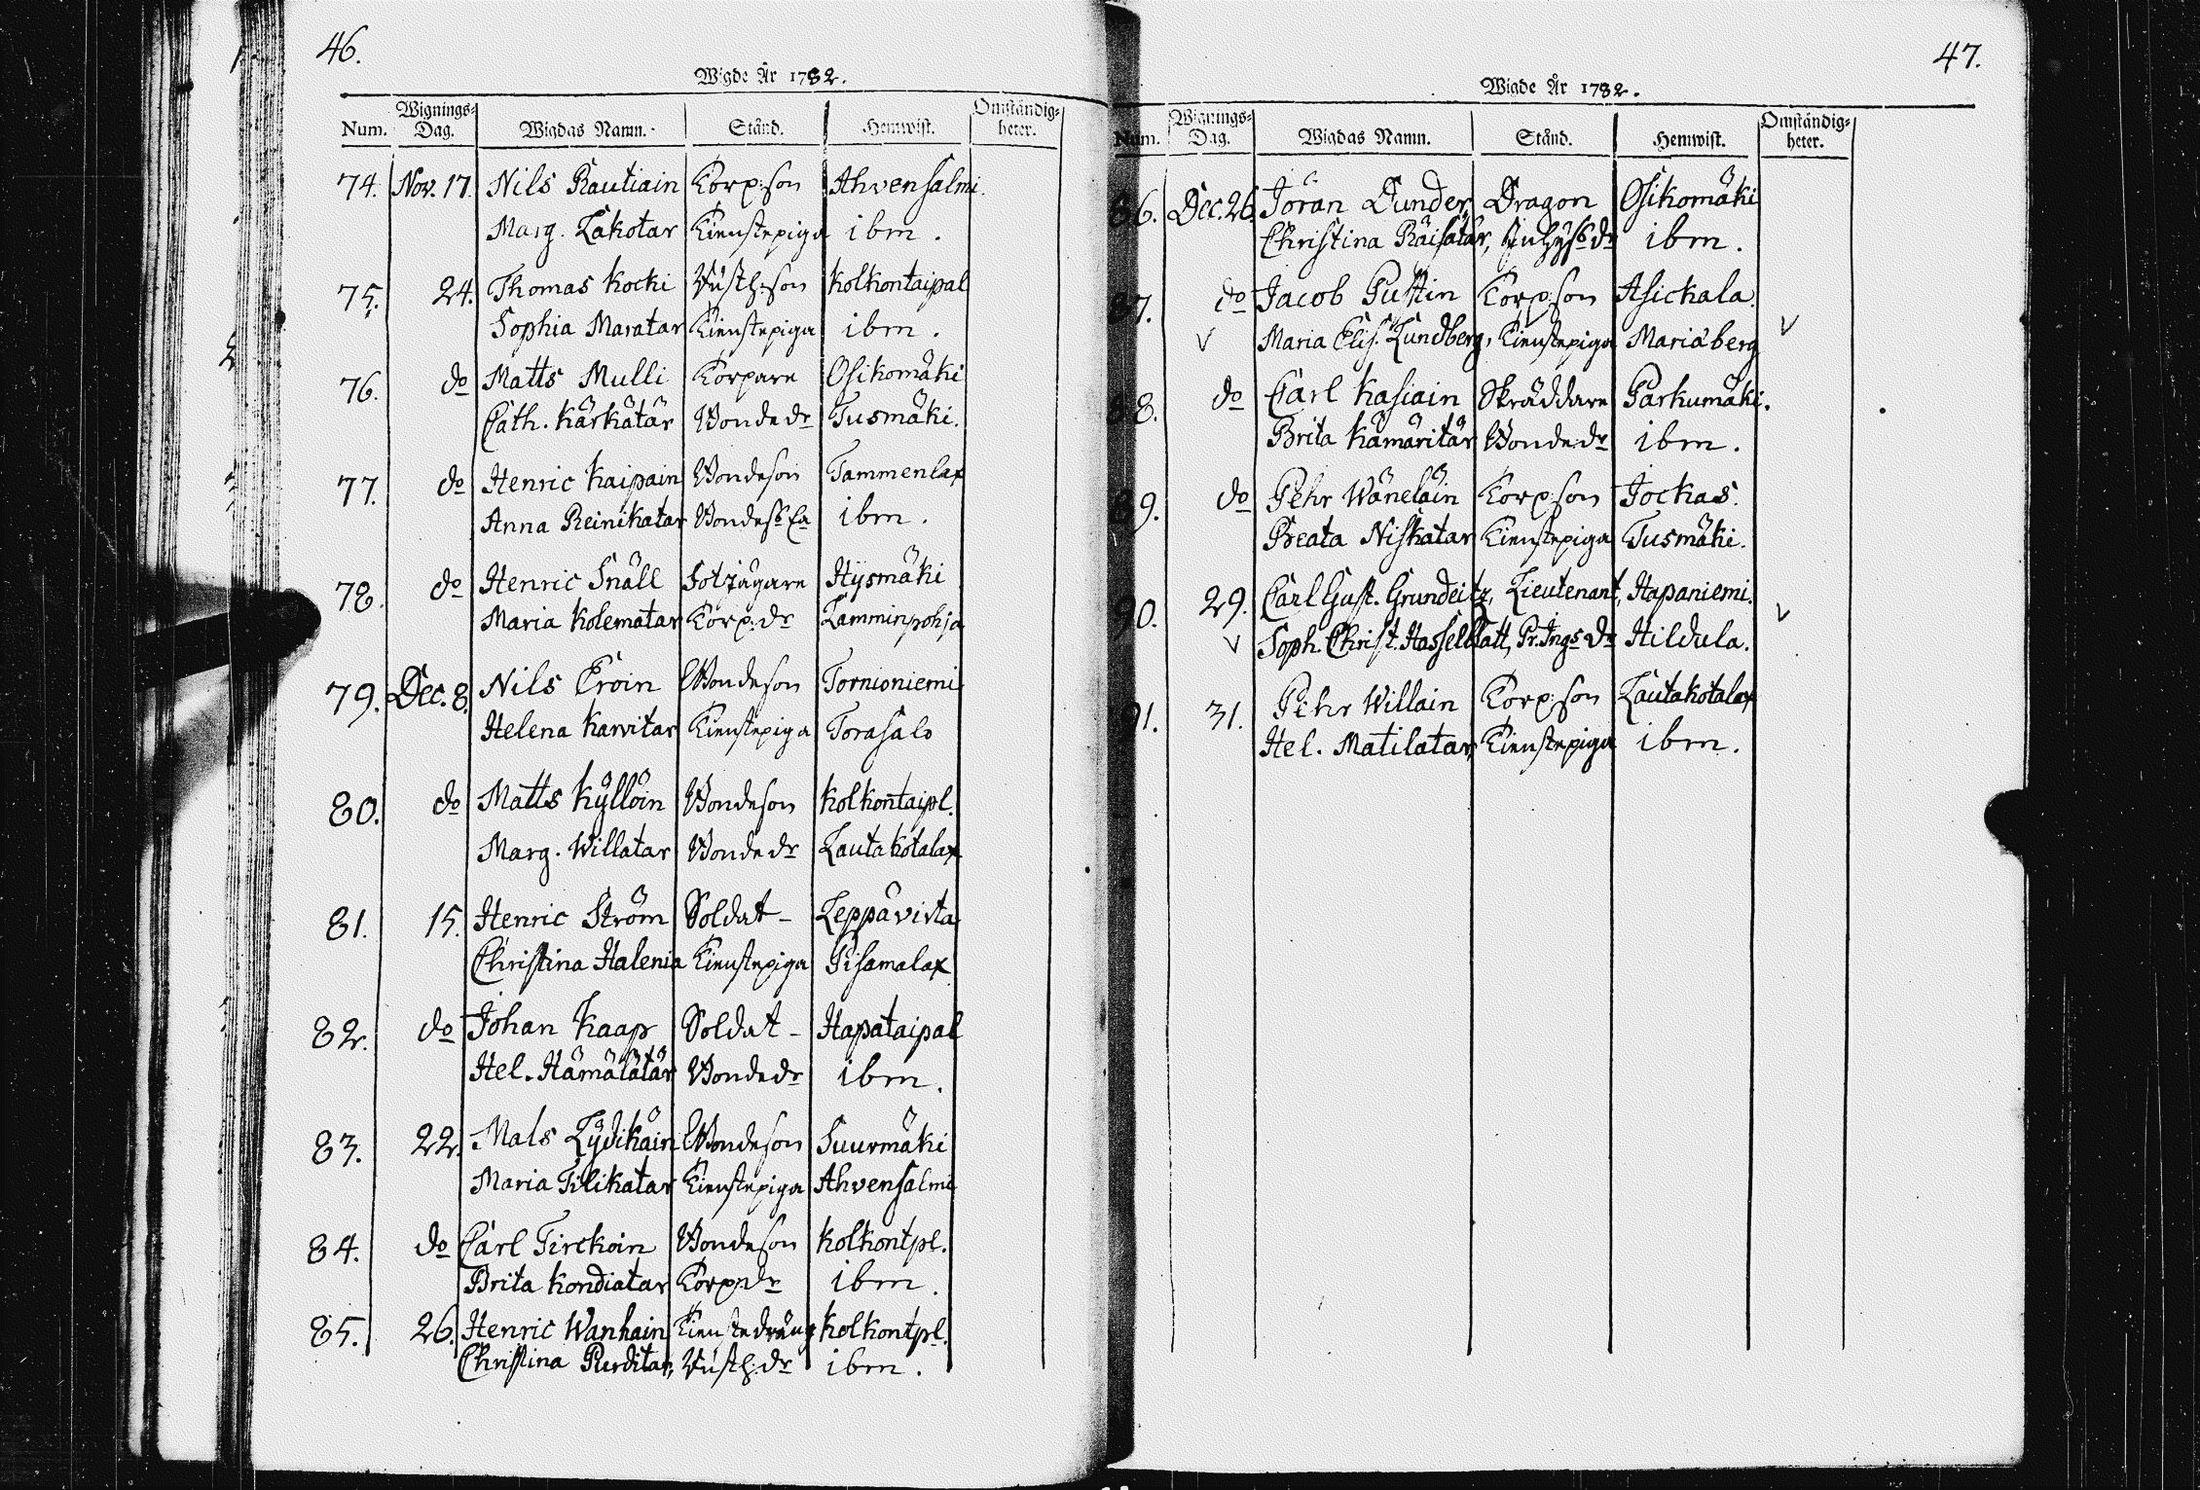 46.
Wigde År 1782.
Num. Wignings-Dag. Wigdas Namn. Stånd. Hemwist. Omständig-heter.
74. Nov. 17. Nils Rautiain Torp:son Ahvensalmi
Marg. Lakotar Tienstepiga ibm.
75. 24. Thomas Kocki Rusth:son Kolkontaipal
Sophia Maratar Tienstepiga ibm.
76. do Matts Mulli Torpare Osikomäki
Cath. Kärkätär Bondedr Tusmäki.
77. do Henric Kaipain Bondeson Tammenlax
Anna Reinikatar ibm.
78. do Henric Snäll Fotjägare Hysmäki
Maria Kolematar Torp:dr Lamminpohja
79. Dec. 8. Nils Eroin Bondeson Tornioniemi
Helena Karvitar Tienstepiga Torasalo
80. do Matts Kyllöin Bondeson Kolkontaipl.
Marg. Willatar Bondedr Lautakotalax
81. 15. Henric Ström Soldat Leppävirta
Christina Halenia Tienstepiga Pisamalax
82. do Johan Kaap Soldat Hapataipal
Hel. Hämälätär Bondedr ibm.
83. 22. Mats Lydikäin Bondeson Suurmäki
Maria Tilikatar Tienstepiga Ahvensalmi
84. do Carl Tirckoin Bondeson Kolkontpl.
Brita Kondiatar Torp:dr ibm.
85. 26. Henric Wanhain Tienstedräng Kolkontpl.
Christina Purditar, Rusth:dr ibm.
47.
Wigde År 1782.
Num. Wignings-Dag. Wigdas Namn. Stånd. Hemwist. Omständig-heter.
86. Dec. 26. Jöran Dunder Dragon Osikomäki
Christina Räisätär, Inhys dr ibm.
87. do Jacob Puttin Torp:son Asickala.
Maria Elis. Lundberg, Tienstepiga Mariäberg
88. do Carl Kasiain Skräddare Parkumäki.
Brita Kämäritär Bondedr ibm.
89. do Pehr Wäneläin Torp:son Jockas.
Beata Niskatar Tienstepiga Tusmäki.
90. 29. Carl Gust. Grundeitz, Lieutenant, Hapaniemi.
Soph. Christ. Hasselblatt, Pr. Ings dr Hildula.
91. 31. Pehr Willain Torp:son Lautakotalax
Hel. Matilatar, Tienstepiga ibm.